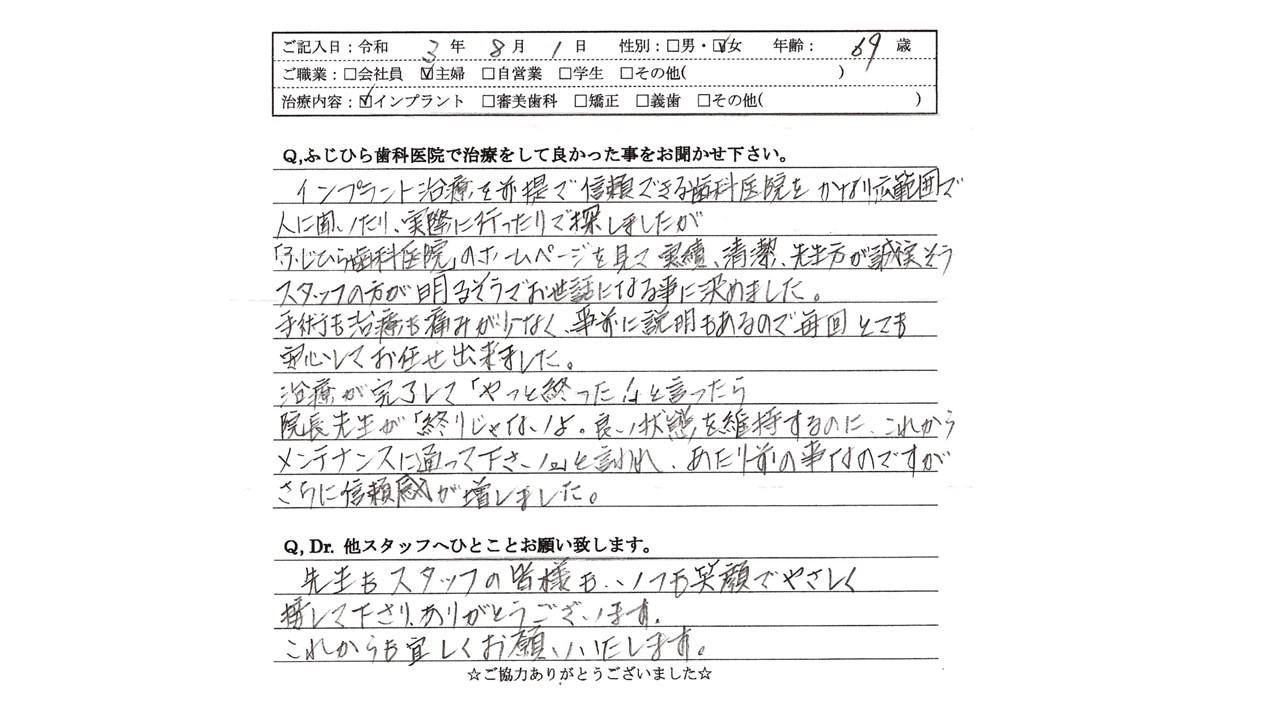 ご記入日：令和 3年 8月 1日 性別：□男・☑女 年齢： 69 歳
ご職業：□会社員 ☑主婦 □自営業 □学生 □その他( )
治療内容：☑インプラント □審美歯科 □矯正 □義歯 □その他( )
Q,ふじひら歯科医院で治療をして良かった事をお聞かせ下さい。
インプラント治療を前提で信頼できる歯科医院をかなり広範囲で
人に聞いたり、実際に行ったりで探しましたが
「ふじひら歯科医院」のホームページを見て実績、清潔、先生方が誠実そう
スタッフの方が明るそうでお世話になる事に決めました。
手術も治療も痛みが少なく、事前に説明もあるので毎回とても
安心してお任せ出来ました。
治療が完了して「やっと終った」と言ったら
院長先生が「終りじゃないよ。良い状態を維持するのに、これから
メンテナンスに通って下さい。」と言われ、あたり前の事なのですが
さらに信頼感が増しました。
Q, Dr. 他スタッフへひとことお願い致します。
先生もスタッフの皆様も、いつも笑顔でやさしく
接して下さり、ありがとうございます。
これからも宜しくお願いいたします。
☆ご協力ありがとうございました☆